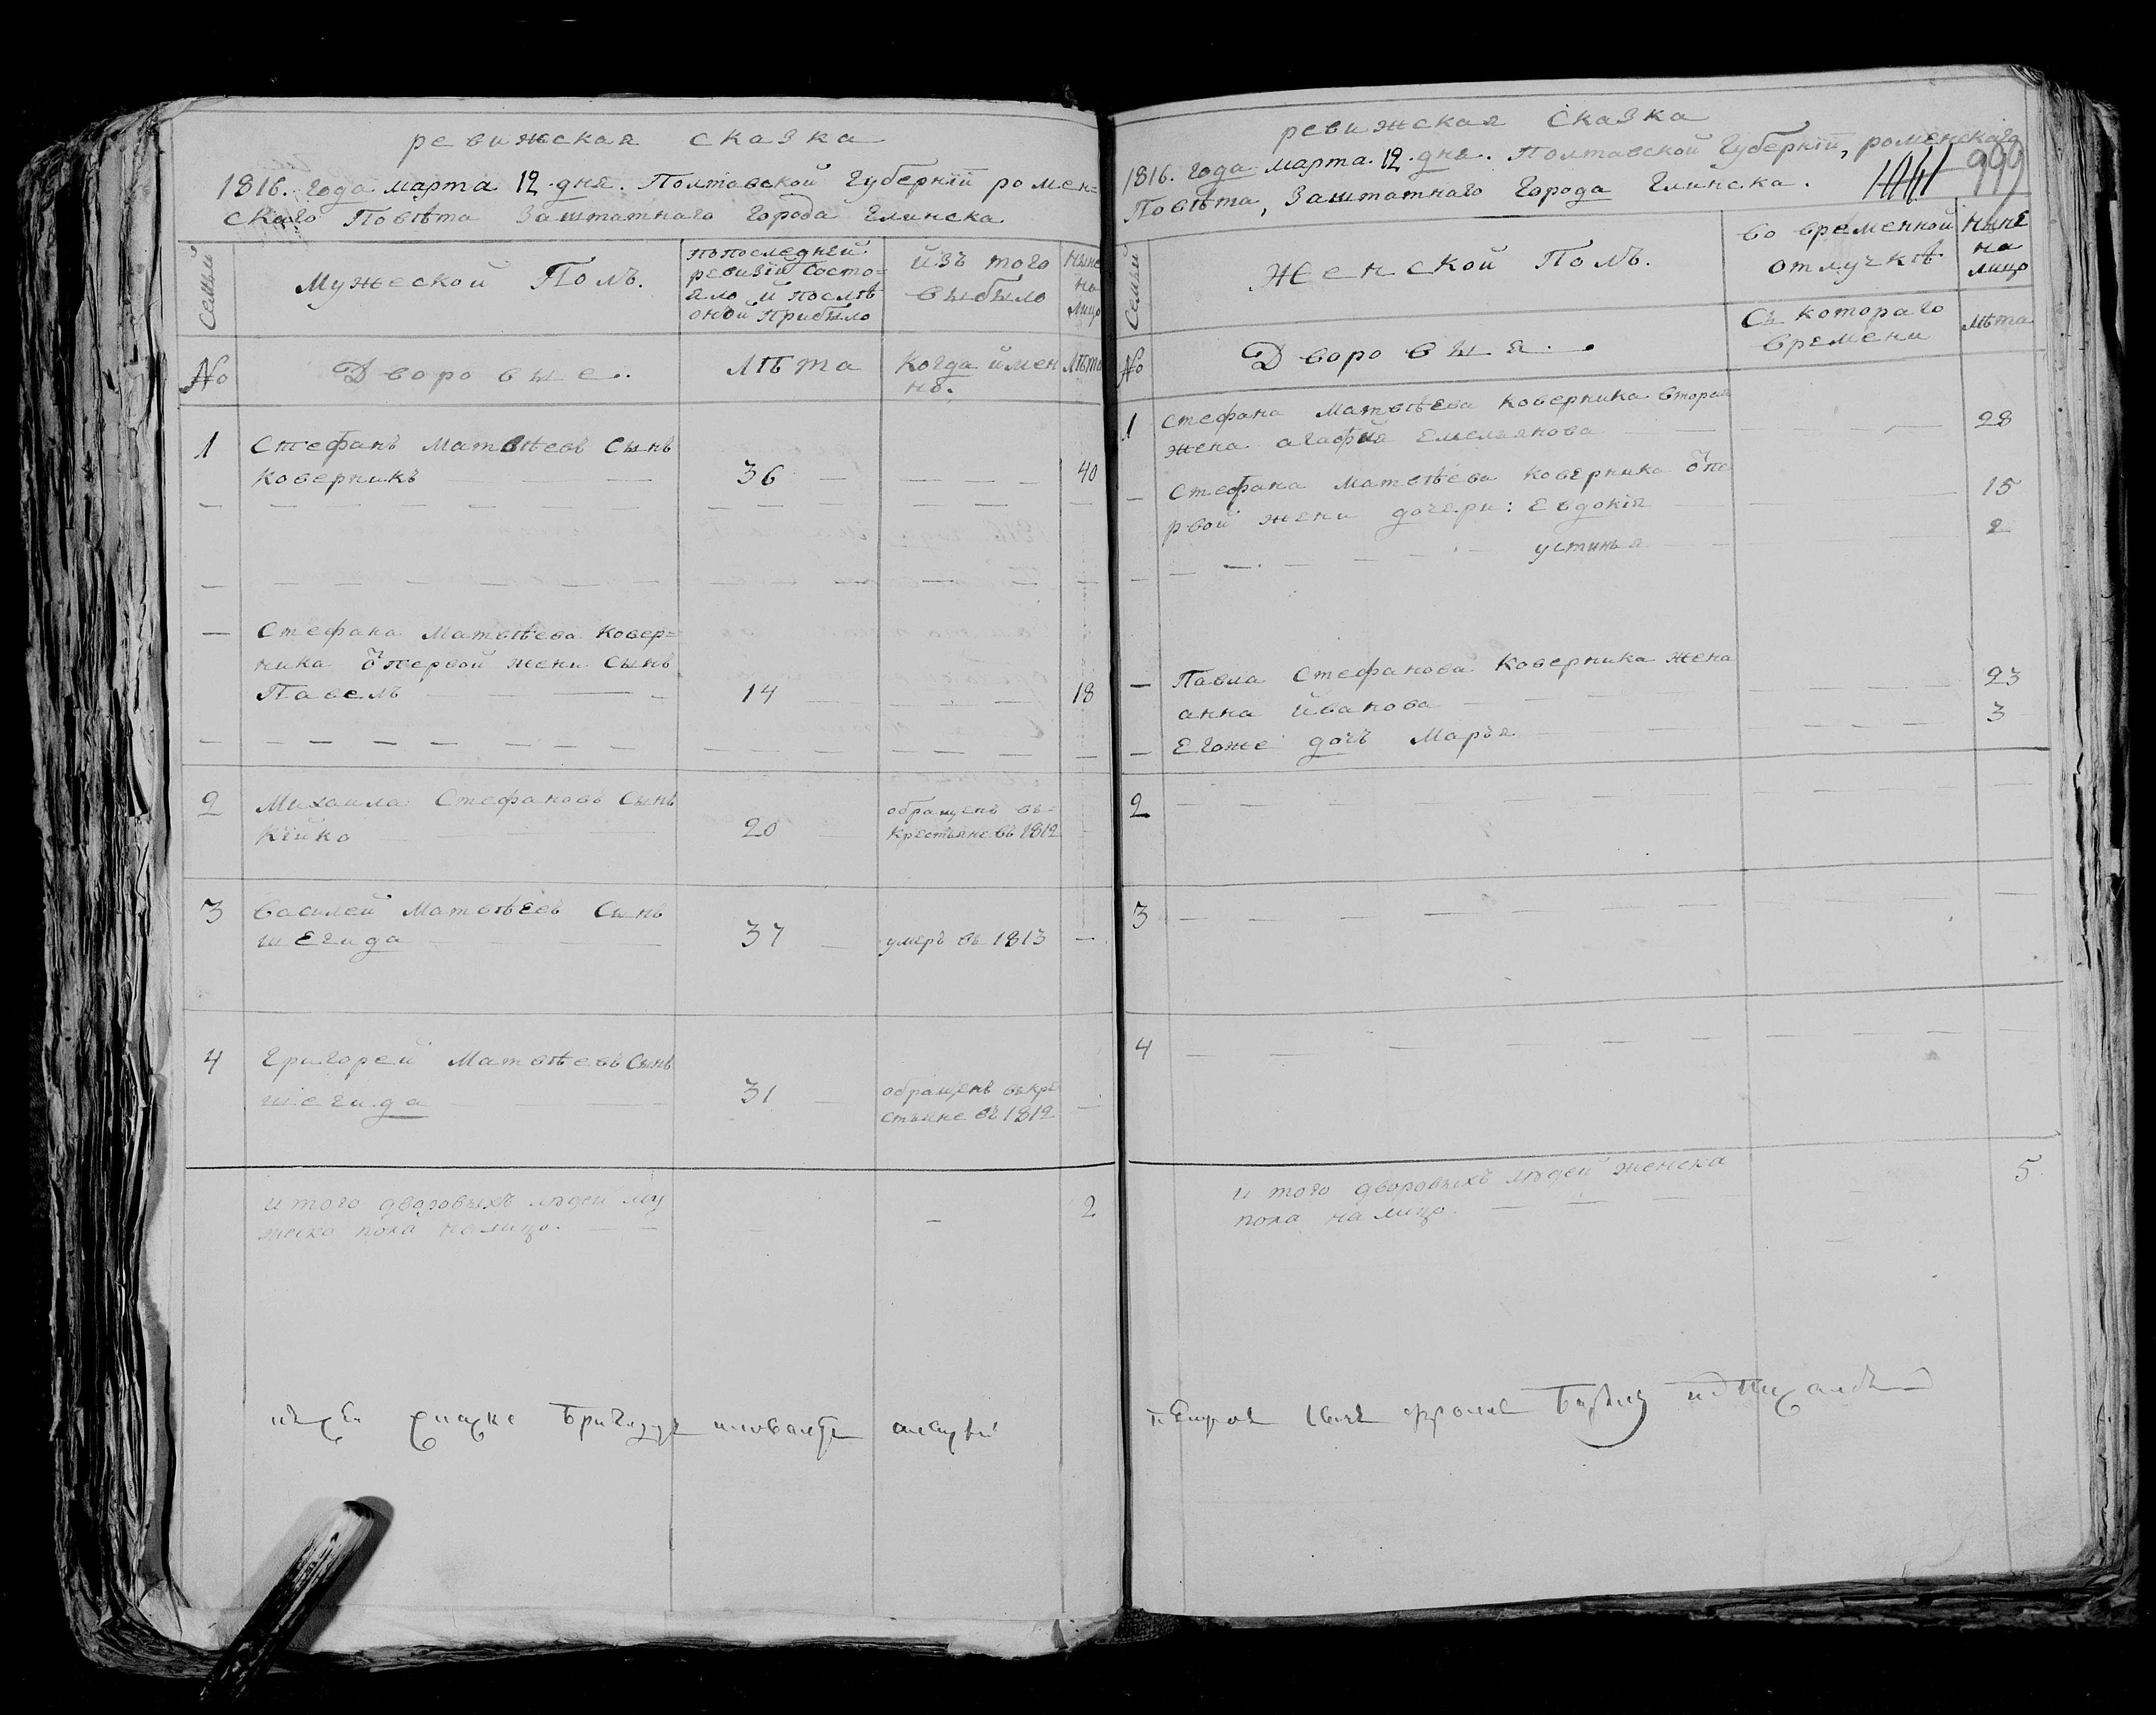 ревижская сказка
1816. года марта 12 дня. Полтавской Губернїи ромен=
скаго Повѣта Заштатнаго города глинска
Семьи
Мужеской Полъ.
попоследней
ревизїи состо=
яло и послѣ
оной прибыло
изъ того
выбыло
ныне
на
лицо
No
Дворовые.
лѣта
когда имен
но.
лѣта
1
Стефанъ Матвѣевъ Сынъ
Коверникъ
36
40
Стефана Матвѣева Ковер=
ника ѿпервой жени Сынъ
Павелъ
14
18
2
Михаила Стефановъ Сынъ
Кїйко
20
обращенъ въ=
крестьяне въ 1812
3
Василей Матвѣевъ Сынъ
шЕгида
37
умеръ въ 1813
4
Григорей Матвѣевъ Сынъ
шегида
31
обращенъ вкре
стьяне въ 1812
итого дворовыхъ людей му
жеска пола налицо.
2
ревижская Сказка
1816. года марта. 12. дня. Полтавской Губернїи, роменскаго
Повѣта, Заштатнаго Города Глинска.
1041 999
Семьи
Женской Полъ.
во временной
отлучкѣ
ныне
на
лицо
No
Дворовыя.
Съ котораго
времени
лѣта
1
Стефана Матвѣева Коверника вторая
жена агафия Емельянова
28
Стефана Матвѣева Коверника ѿпе
рвой жени дочери: Евдокїя
15
устинья
2
Павла Стефанова Коверника жена
анна Иванова
23
Егоже дочъ Марья
3
2
3
4
и того дворовыхъ людей женска
пола на лицо.
5